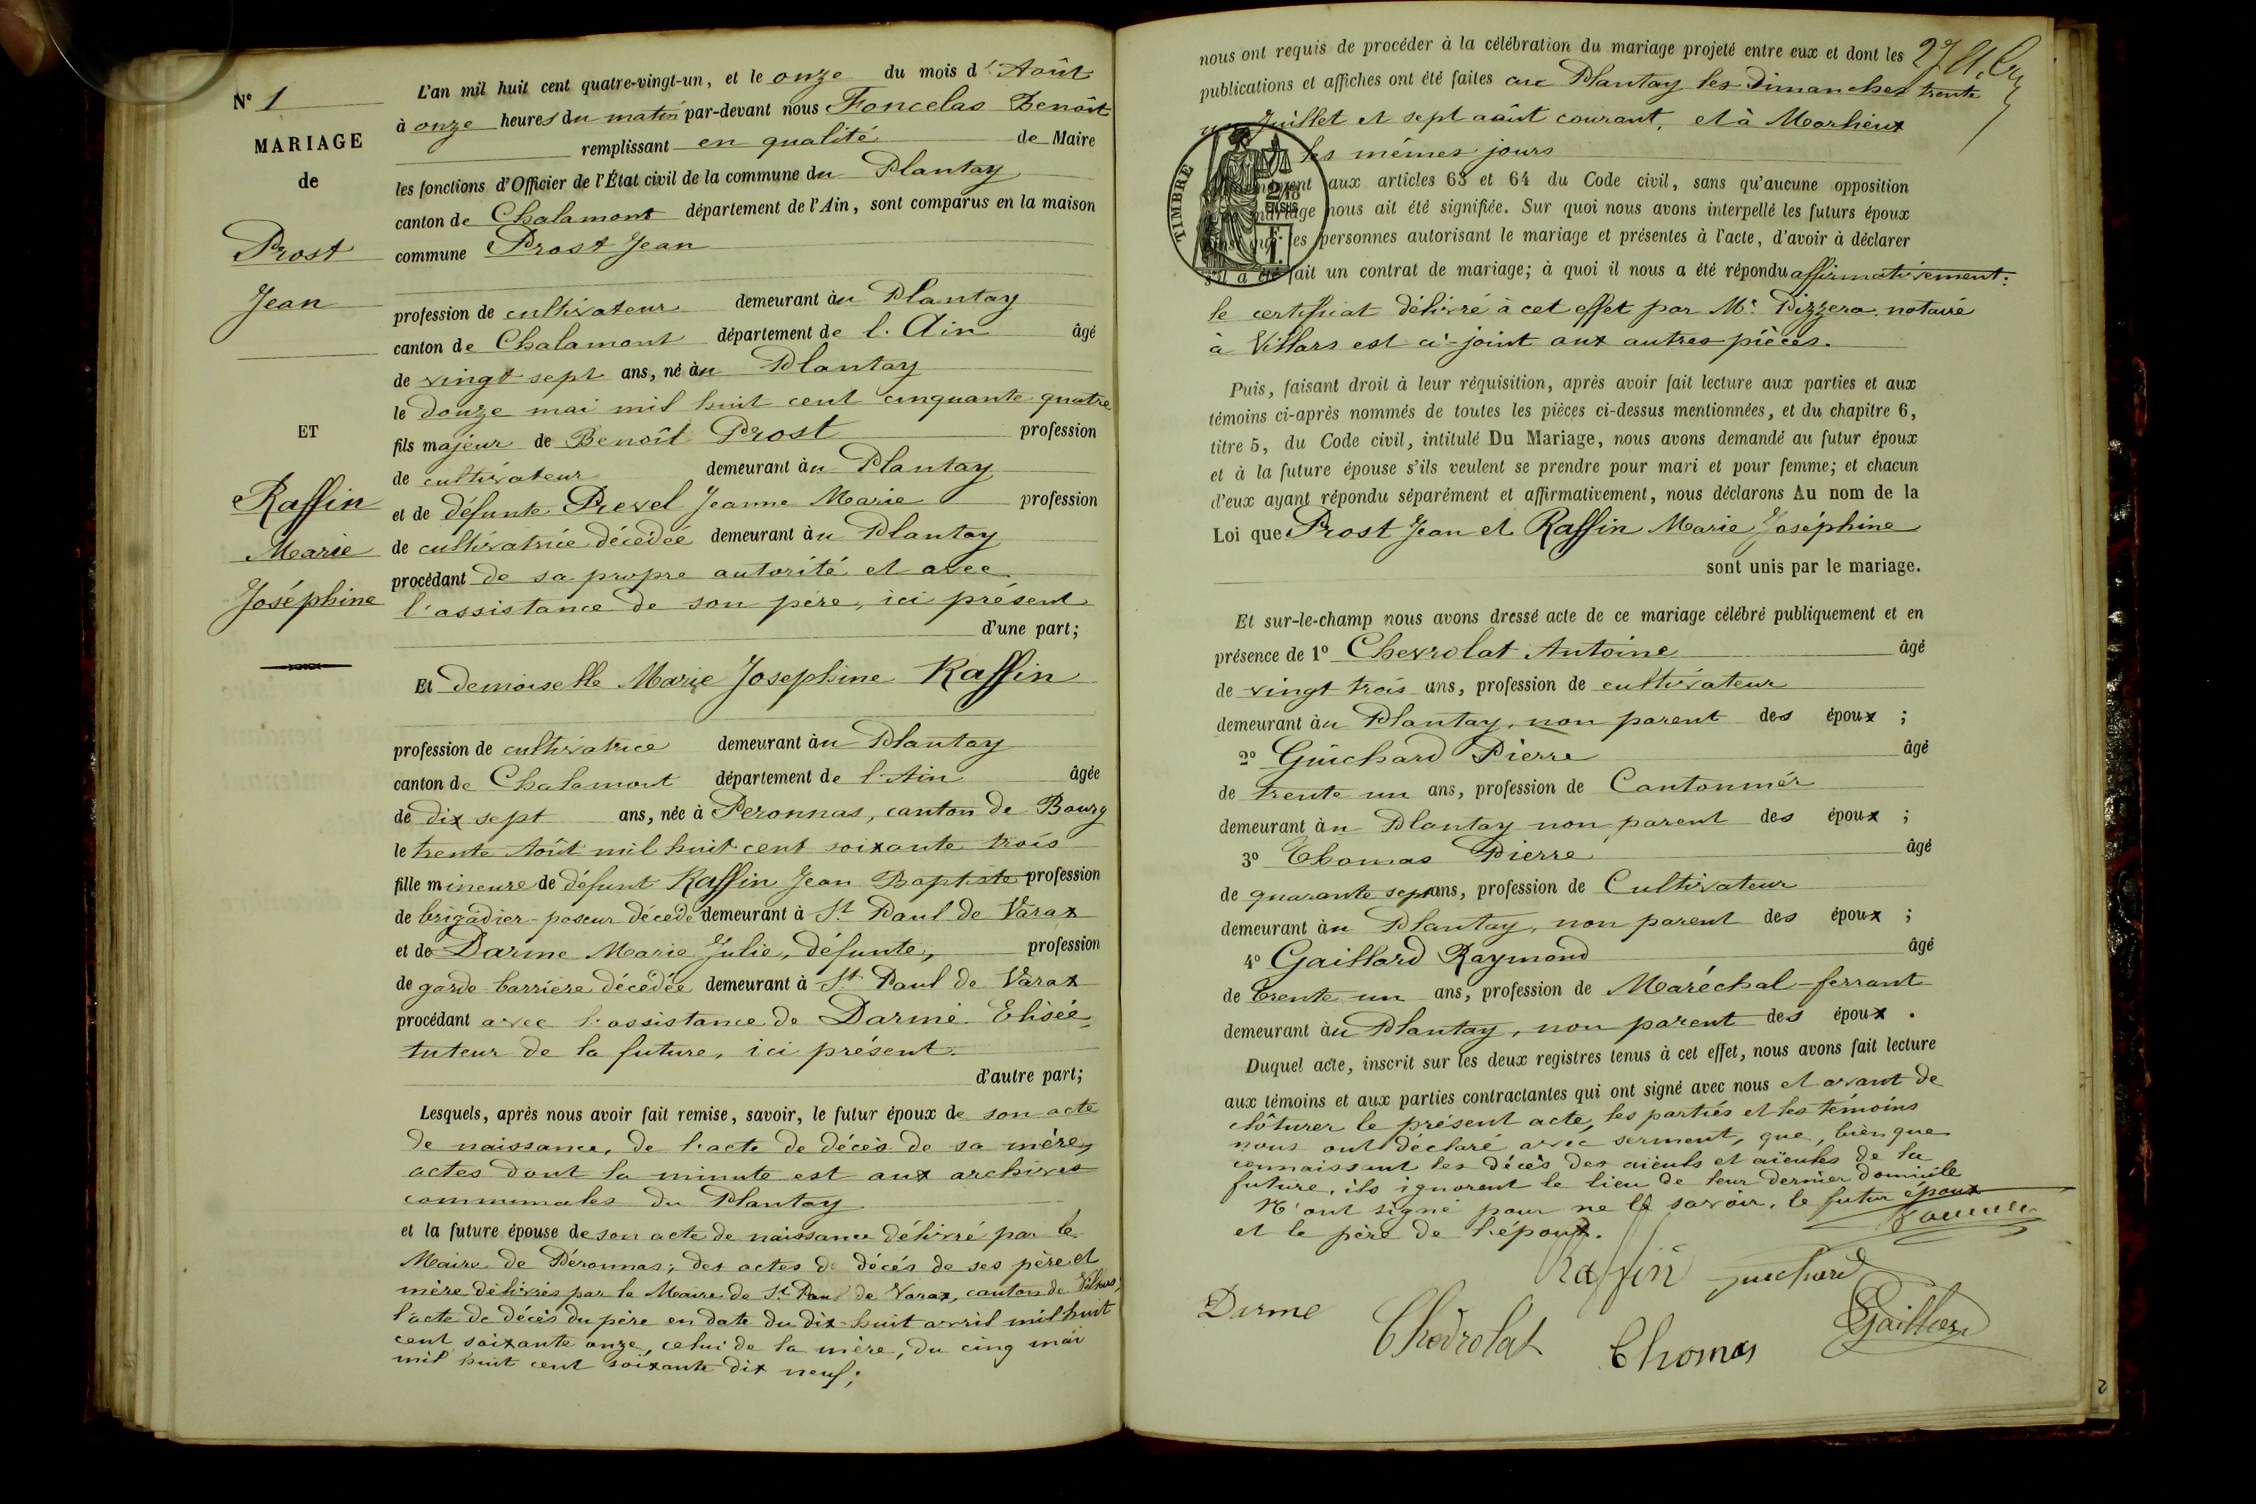 Nº 1
MARIAGE
de
Prost
Jean
ET
Raffin
Marie
Joséphine
L'an mil huit cent quatre-vingt-un, et le onze du mois d'Août
à onze heures du matin par-devant nous Foncelas Benoît
remplissant en qualité de Maire
les fonctions d'Officier de l'État civil de la commune du Plantay
canton de Chalamont département de l'Ain, sont comparus en la maison
commune Prost Jean
profession de cultivateur demeurant au Plantay
canton de Chalamont département de l'Ain âgé
de vingt sept ans, né au Plantay
le douze mai mil huit cent cinquante quatre
fils majeur de Benoît Prost profession
de cultivateur demeurant au Plantay
et de défunte Prevel Jeanne Marie profession
de cultivatrice décédée demeurant au Plantay
procédant de sa propre autorité et avec
l'assistance de son père, ici présent
d'une part;
Et demoiselle Marie Josephine Raffin
profession de cultivatrice demeurant au Plantay
canton de Chalamont département de l'Ain âgée
de dix sept ans, née à Peronnas, canton de Bourg
le trente Août mil huit cent soixante trois
fille mineure de défunt Raffin Jean Baptiste profession
de brigadier-poseur décédé demeurant à St Paul de Varax
et de Darme Marie Julie, défunte, profession
de garde barrière décédée demeurant à St Paul de Varax
procédant avec l'assistance de Darme Elisée,
tuteur de la future, ici présent.
d'autre part;
Lesquels, après nous avoir fait remise, savoir, le futur époux de son acte
de naissance, de l'acte de décès de sa mère,
actes dont la minute est aux archives
communales du Plantay
et la future épouse de son acte de naissance délivré par le
Maire de Péronnas; des actes de décès de ses père et
mère délivrés par le Maire de St Paul de Varax, canton de Villars;
l'acte de décès du père en date du dix-huit avril mil huit
cent soixante onze, celui de la mère, du cinq mai
mil huit cent soixante dix neuf;
nous ont requis de procéder à la célébration du mariage projeté entre eux et dont les
publications et affiches ont été faites au Plantay les Dimanches trente
un Juillet et sept août courant, et à Marlieux
les mêmes jours
TIMBRE
aux articles 63 et 64 du Code civil, sans qu'aucune opposition
mariage nous ait été signifiée. Sur quoi nous avons interpellé les futurs époux
les personnes autorisant le mariage et présentes à l'acte, d'avoir à déclarer
s'il a été fait un contrat de mariage; à quoi il nous a été répondu affirmativement:
le certificat délivré à cet effet par Me Pizzera notaire
à Villars est ci-joint aux autres pièces.
Puis, faisant droit à leur réquisition, après avoir fait lecture aux parties et aux
témoins ci-après nommés de toutes les pièces ci-dessus mentionnées, et du chapitre 6,
titre 5, du Code civil, intitulé Du Mariage, nous avons demandé au futur époux
et à la future épouse s'ils veulent se prendre pour mari et pour femme; et chacun
d'eux ayant répondu séparément et affirmativement, nous déclarons Au nom de la
Loi que Prost Jean et Raffin Marie Joséphine
sont unis par le mariage.
Et sur-le-champ nous avons dressé acte de ce mariage célébré publiquement et en
présence de 1º Chevrolat Antoine âgé
de vingt trois ans, profession de cultivateur
demeurant au Plantay, non parent des époux ;
2º Guichard Pierre âgé
de trente un ans, profession de Cantonnier
demeurant au Plantay non parent des époux ;
3º Thomas Pierre âgé
de quarante sept ans, profession de Cultivateur
demeurant au Plantay, non parent des époux ;
4º Gaillard Raymond âgé
de trente un ans, profession de Maréchal-ferrant
demeurant au Plantay, non parent des époux .
Duquel acte, inscrit sur les deux registres tenus à cet effet, nous avons fait lecture
aux témoins et aux parties contractantes qui ont signé avec nous et avant de
clôturer le présent acte, les parties et les témoins
nous ont déclaré avec serment, que, bien que
connaissant les décès des aïeuls et aïeules de la
future, ils ignorent le lieu de leur dernier domicile
N'ont signé pour ne le savoir, le futur époux
et le père de l'époux.
Raffin Guichard
Darme Chevrolat Thomas Gaillard
2